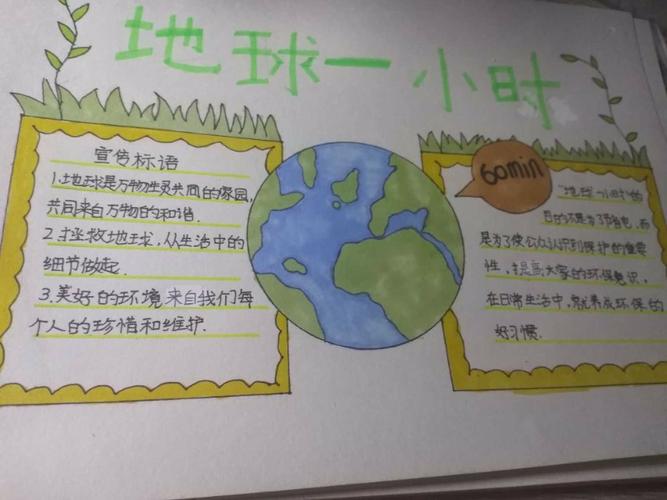 地球一小时
宣传标语
1.地球是万物生灵共同的家园,
共同来自万物的和谐.
2.拯救地球,从生活中的
细节做起.
3.美好的环境来自我们每
个人的珍惜和维护.
60min
"地球一小时"的
目的不是为了节省电,而
是为了使公众认识到保护的重要
性,提高大家的环保意识,
在日常生活中,就养成环保的
好习惯.